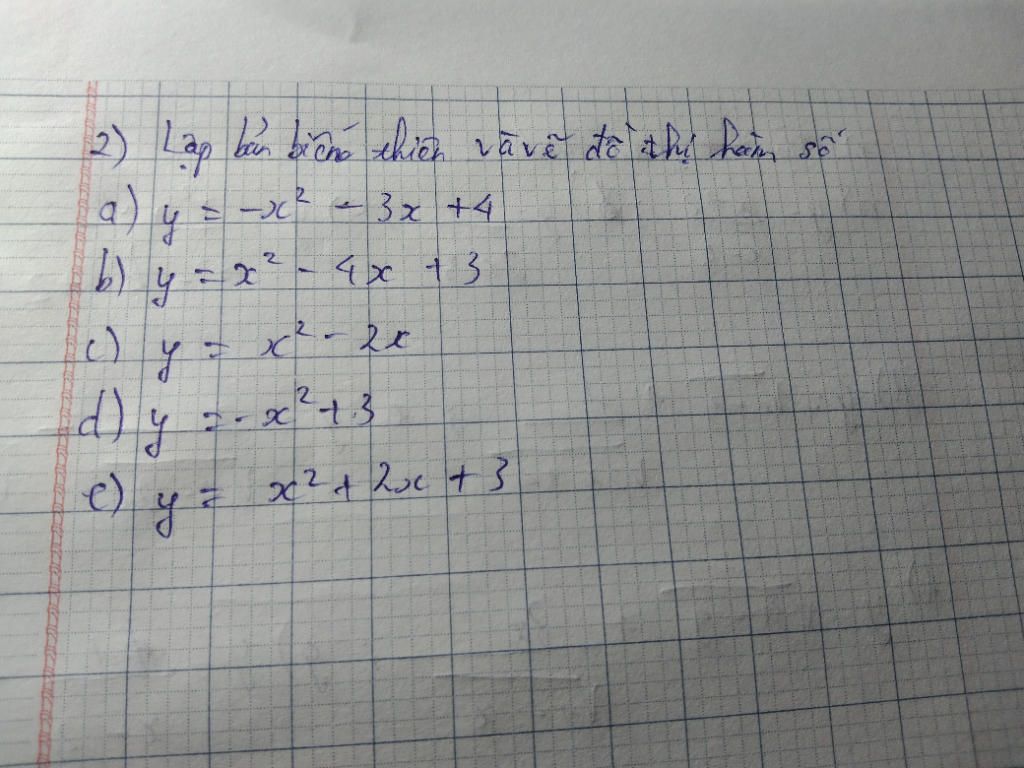 2) Lập bản biến thiên và vẽ đồ thị hàm số
a) y = -x² - 3x + 4
b) y = x² - 4x + 3
c) y = x² - 2x
d) y = -x² + 3
e) y = x² + 2x + 3